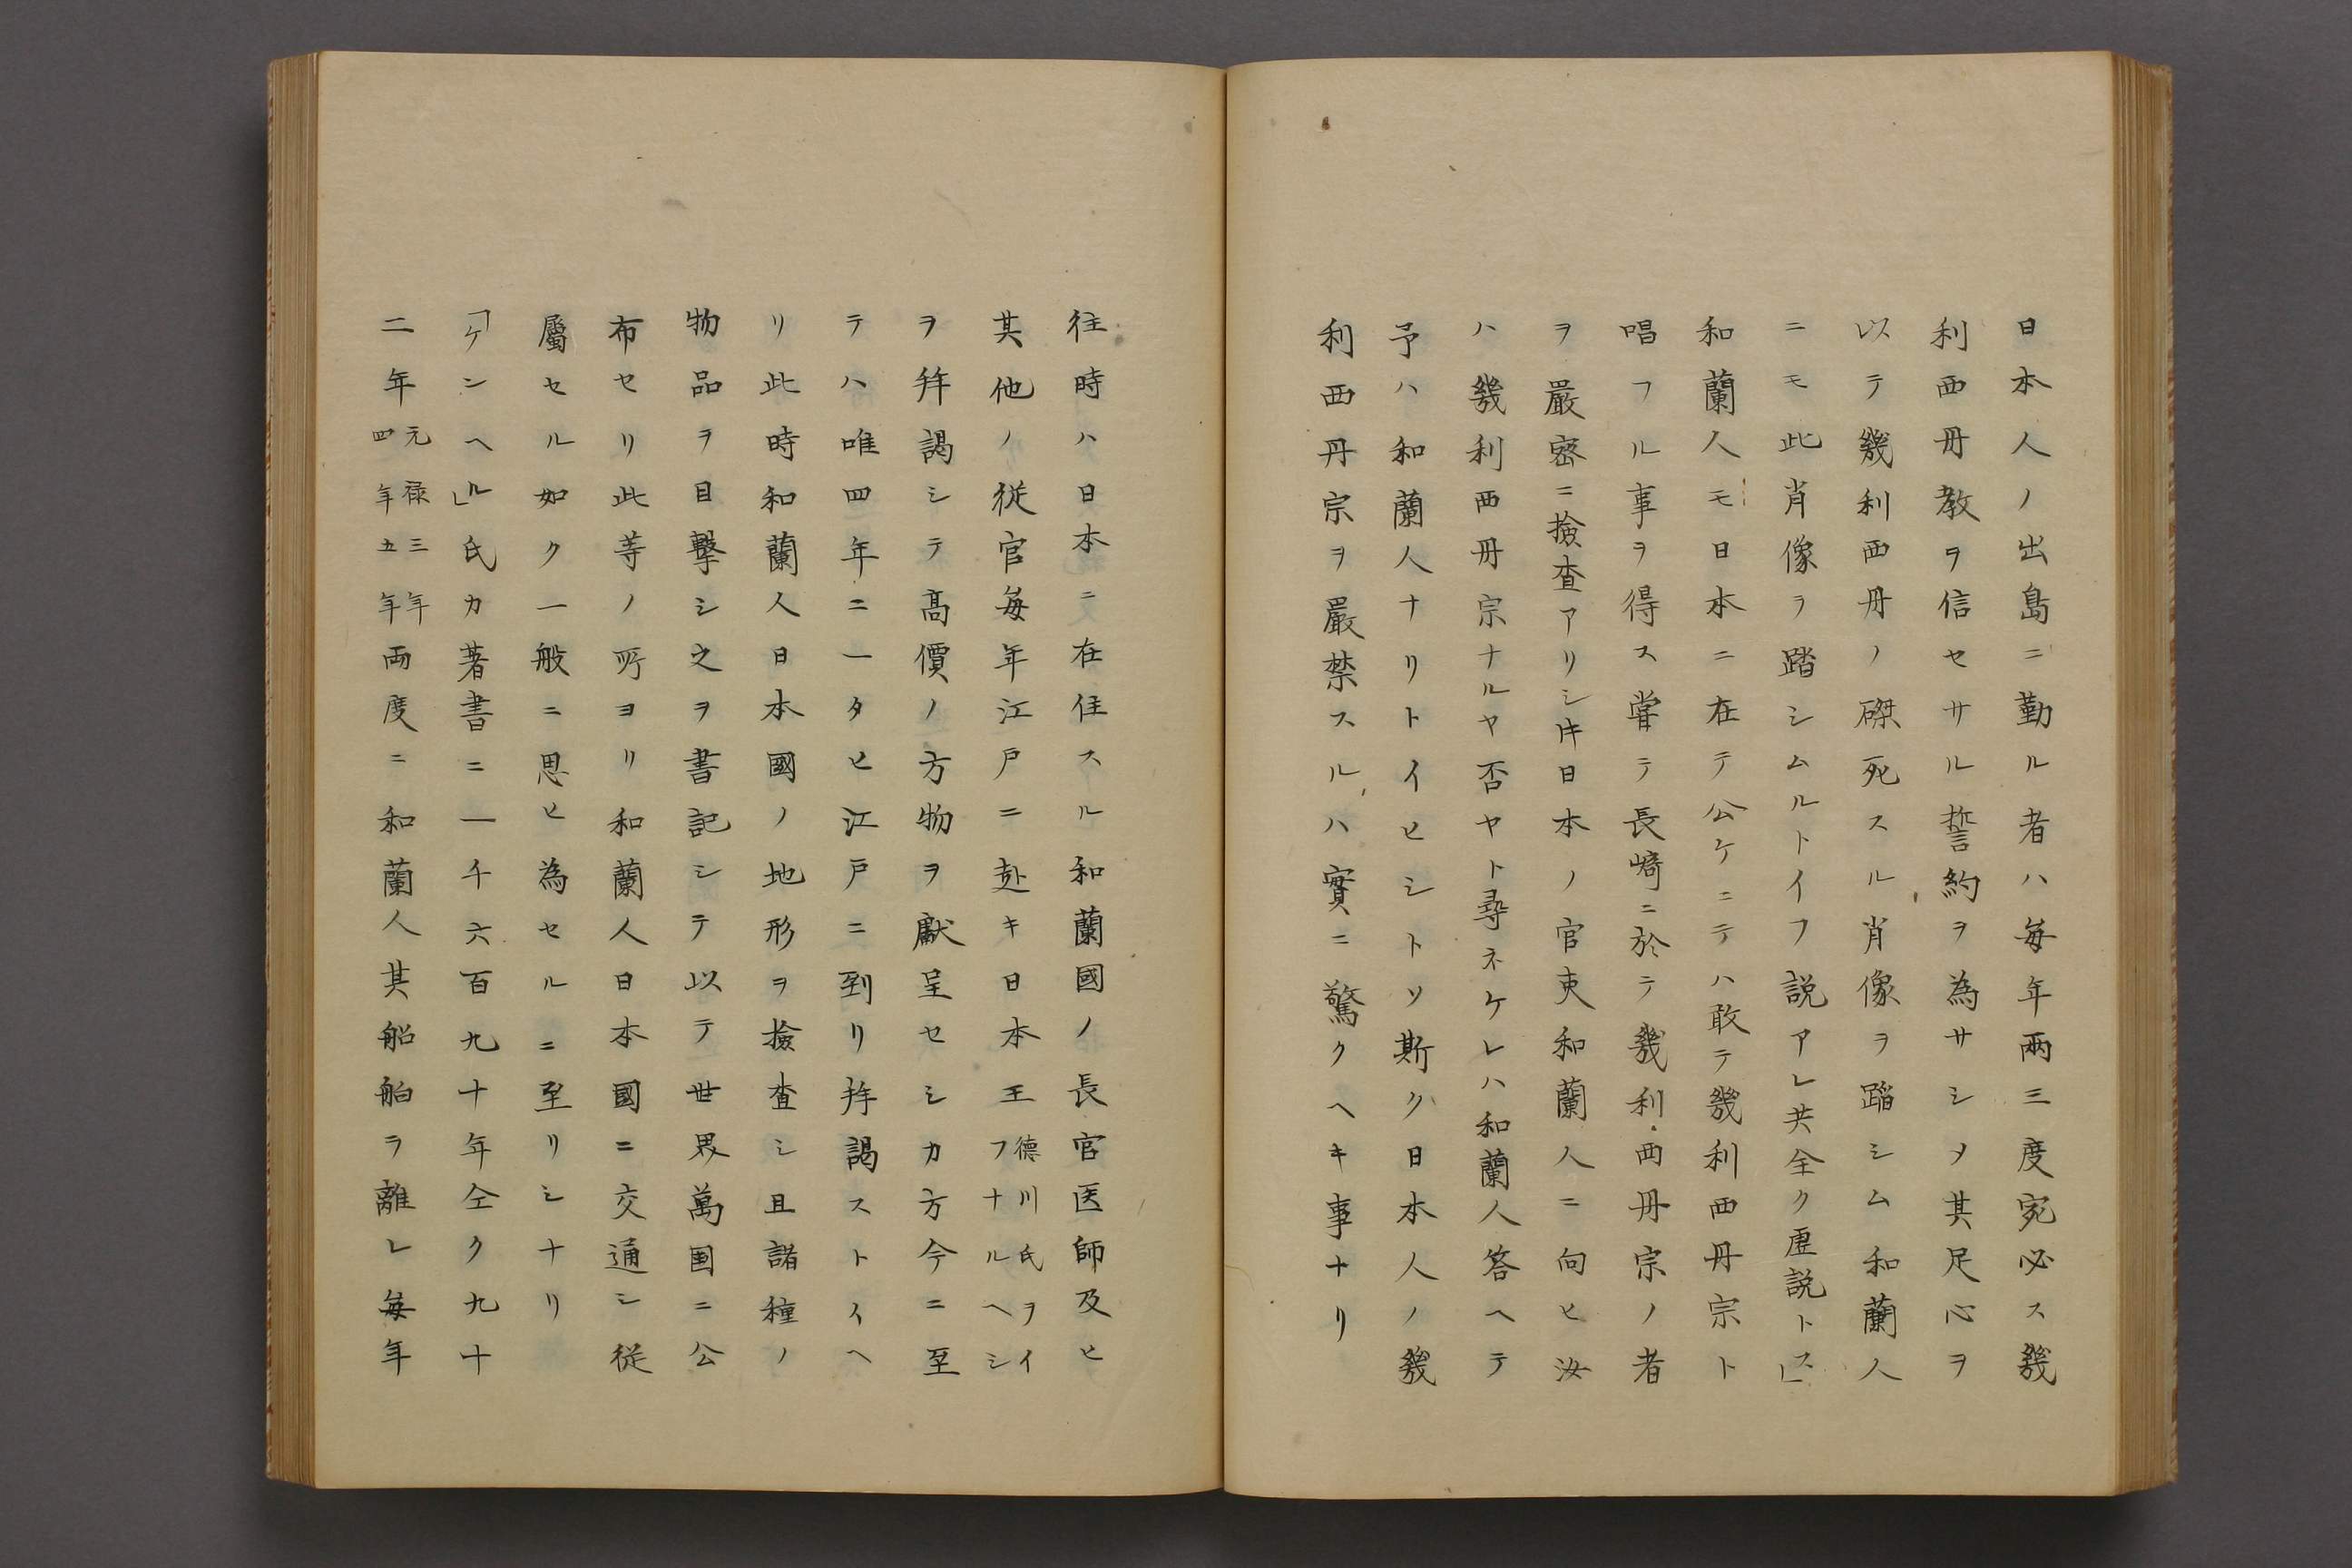 日本人ノ出島ニ勤ル者ハ毎年兩三度宛必ス幾
利西丹教ヲ信セサル誓約ヲ為サシメ其足心ヲ
以テ幾利西丹ノ磔死スル肖像ヲ蹈シム和蘭人
ニモ此肖像ヲ踏シムルトイフ説アレ共全ク虚説トス」
和蘭人モ日本ニ在テ公ケニテハ敢テ幾利西丹宗ト
唱フル事ヲ得ス甞テ長崎ニ於テ幾利西丹宗ノ者
ヲ嚴密ニ撿査アリシ𪜈日本ノ官吏和蘭人ニ向ヒ汝
ハ幾利西丹宗ナルヤ否ヤト尋ネケレハ和蘭人答ヘテ
予ハ和蘭人ナリトイヒシトソ斯ク日本人ノ幾
利西丹宗ヲ嚴禁スルハ實ニ驚クヘキ事ナリ
往時ハ日本ニ在住スル和蘭國ノ長官医師及ヒ
其他ノ従官毎年江戸ニ赴キ日本王德川氏ヲイフナルヘシ
ヲ拜謁シテ高價ノ方物ヲ獻呈セシカ方今ニ至
テハ唯四年ニ一タヒ江戸ニ到リ拜謁ストイヘ
リ此時和蘭人日本國ノ地形ヲ撿査シ且諸種ノ
物品ヲ目擊シ之ヲ書記シテ以テ世界萬国ニ公
布セリ此等ノ所ヨリ和蘭人日本國ニ交通シ従
屬セル如ク一般ニ思ヒ為セルニ至リシナリ
「ケンヘル」氏カ著書ニ一千六百九十年仝ク九十
二年元禄三年四年五年両度ニ和蘭人其船舶ヲ離レ毎年